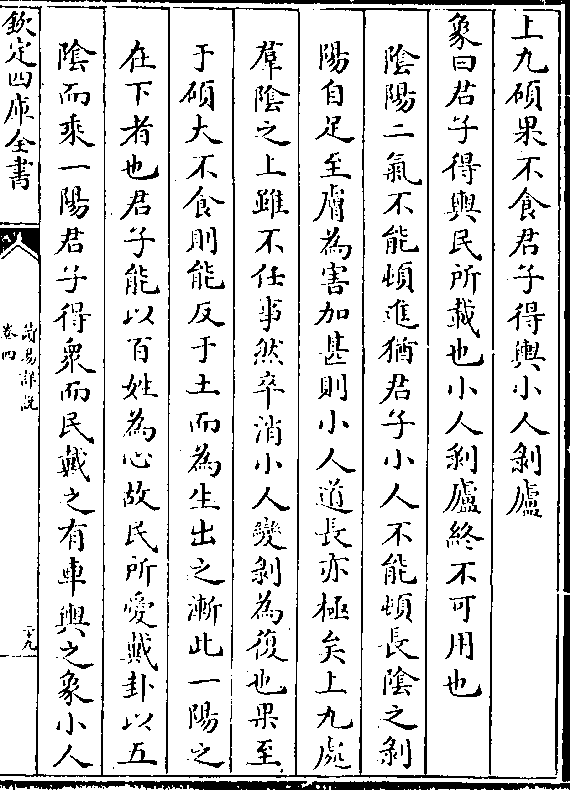 上九碩果不食君子得輿小人剝廬
象曰君子得輿民所載也小人剝廬終不可用也
陰陽二氣不能頓進猶君子小人不能頓長陰之剝
陽自足至膚為害加甚則小人道長亦極矣上九處
羣陰之上雖不任事然卒消小人變剝為復也果至
于碩大不食則能反于土而為生出之漸此一陽之
在下者也君子能以百姓為心故民所愛戴卦以五
陰而乘一陽君子得衆而民戴之有車輿之象小人
欽定四庫全書
易詳說
卷四
二十九